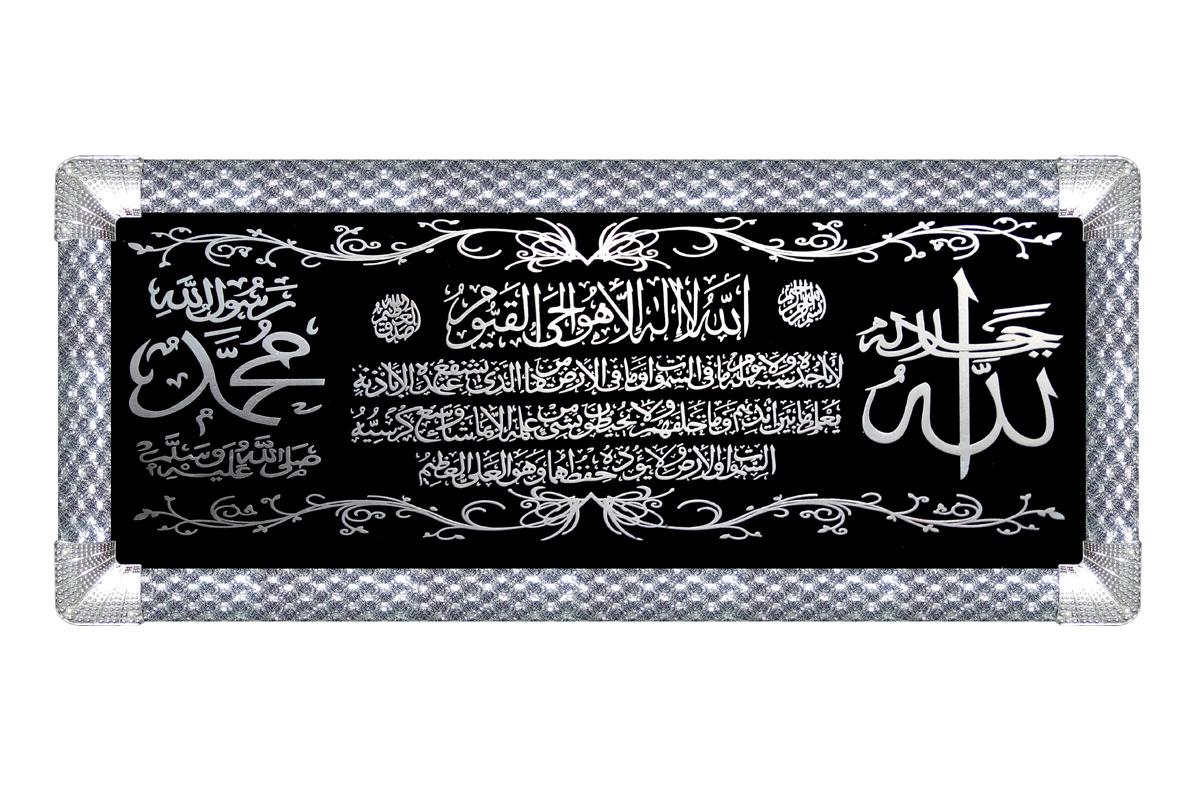 الله
جل جلاله
بسم الله الرحمن الرحيم
الله لا إله إلا هو الحي القيوم
لا تأخذه سنة ولا نوم له ما في السموات وما في الأرض من ذا الذي يشفع عنده إلا بإذنه
يعلم ما بين أيديهم وما خلفهم ولا يحيطون بشئ من علمه إلا بما شاء وسع كرسيه
السموات والأرض ولا يؤده حفظهما وهو العلي العظيم
صدق الله العظيم
رسول الله
محمد
صلى الله عليه وسلم